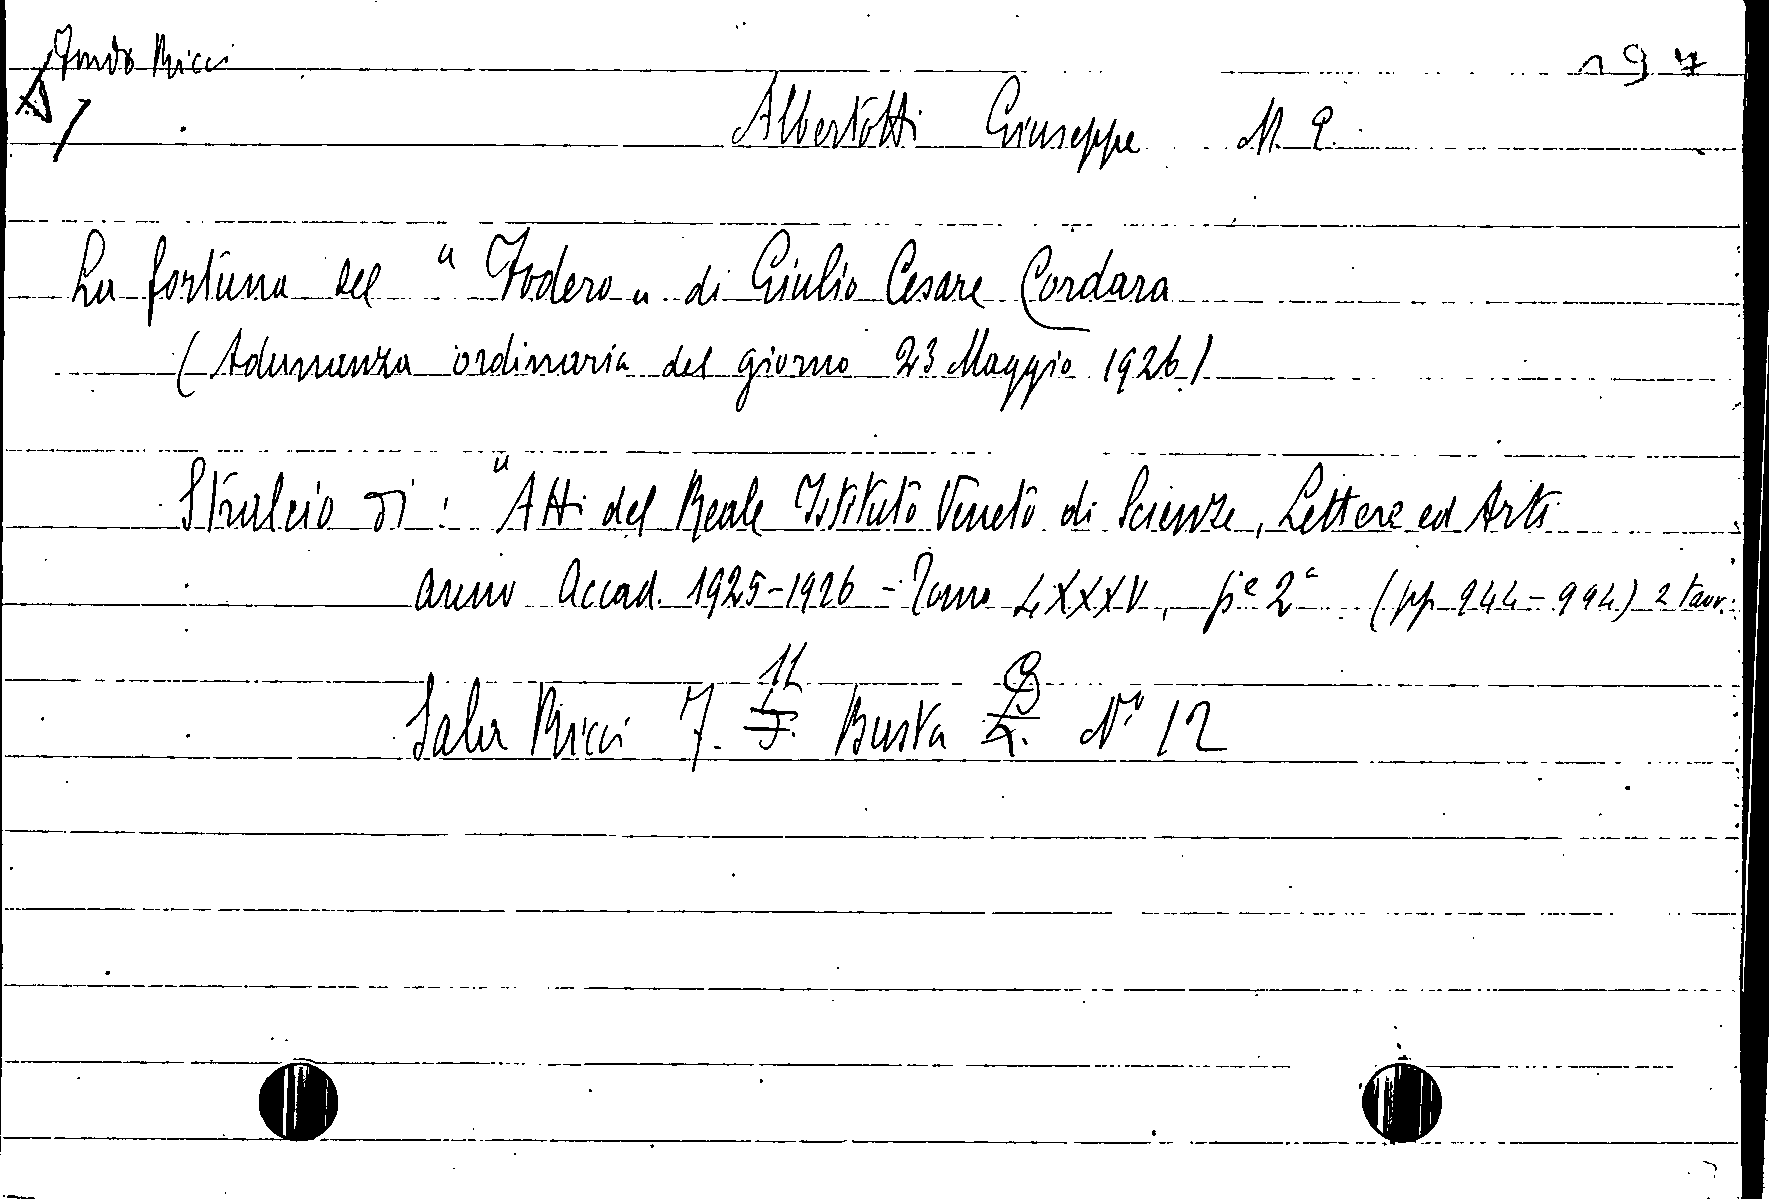 Fondo Ricci 197
Albertotti Giuseppe M. E.
La fortuna del "Fodero" di Giulio Cesare Cordara
(Adunanza ordinaria del giorno 23 Maggio 1926)
Stralcio di: "Atti del Reale Istituto Veneto di Scienze, Lettere ed Arti
anno Accad. 1925-1926 - Tomo LXXXV, pe 2a (pp 944-994) 2 tavv.
Sala Ricci 7. 11 Busta N° 12